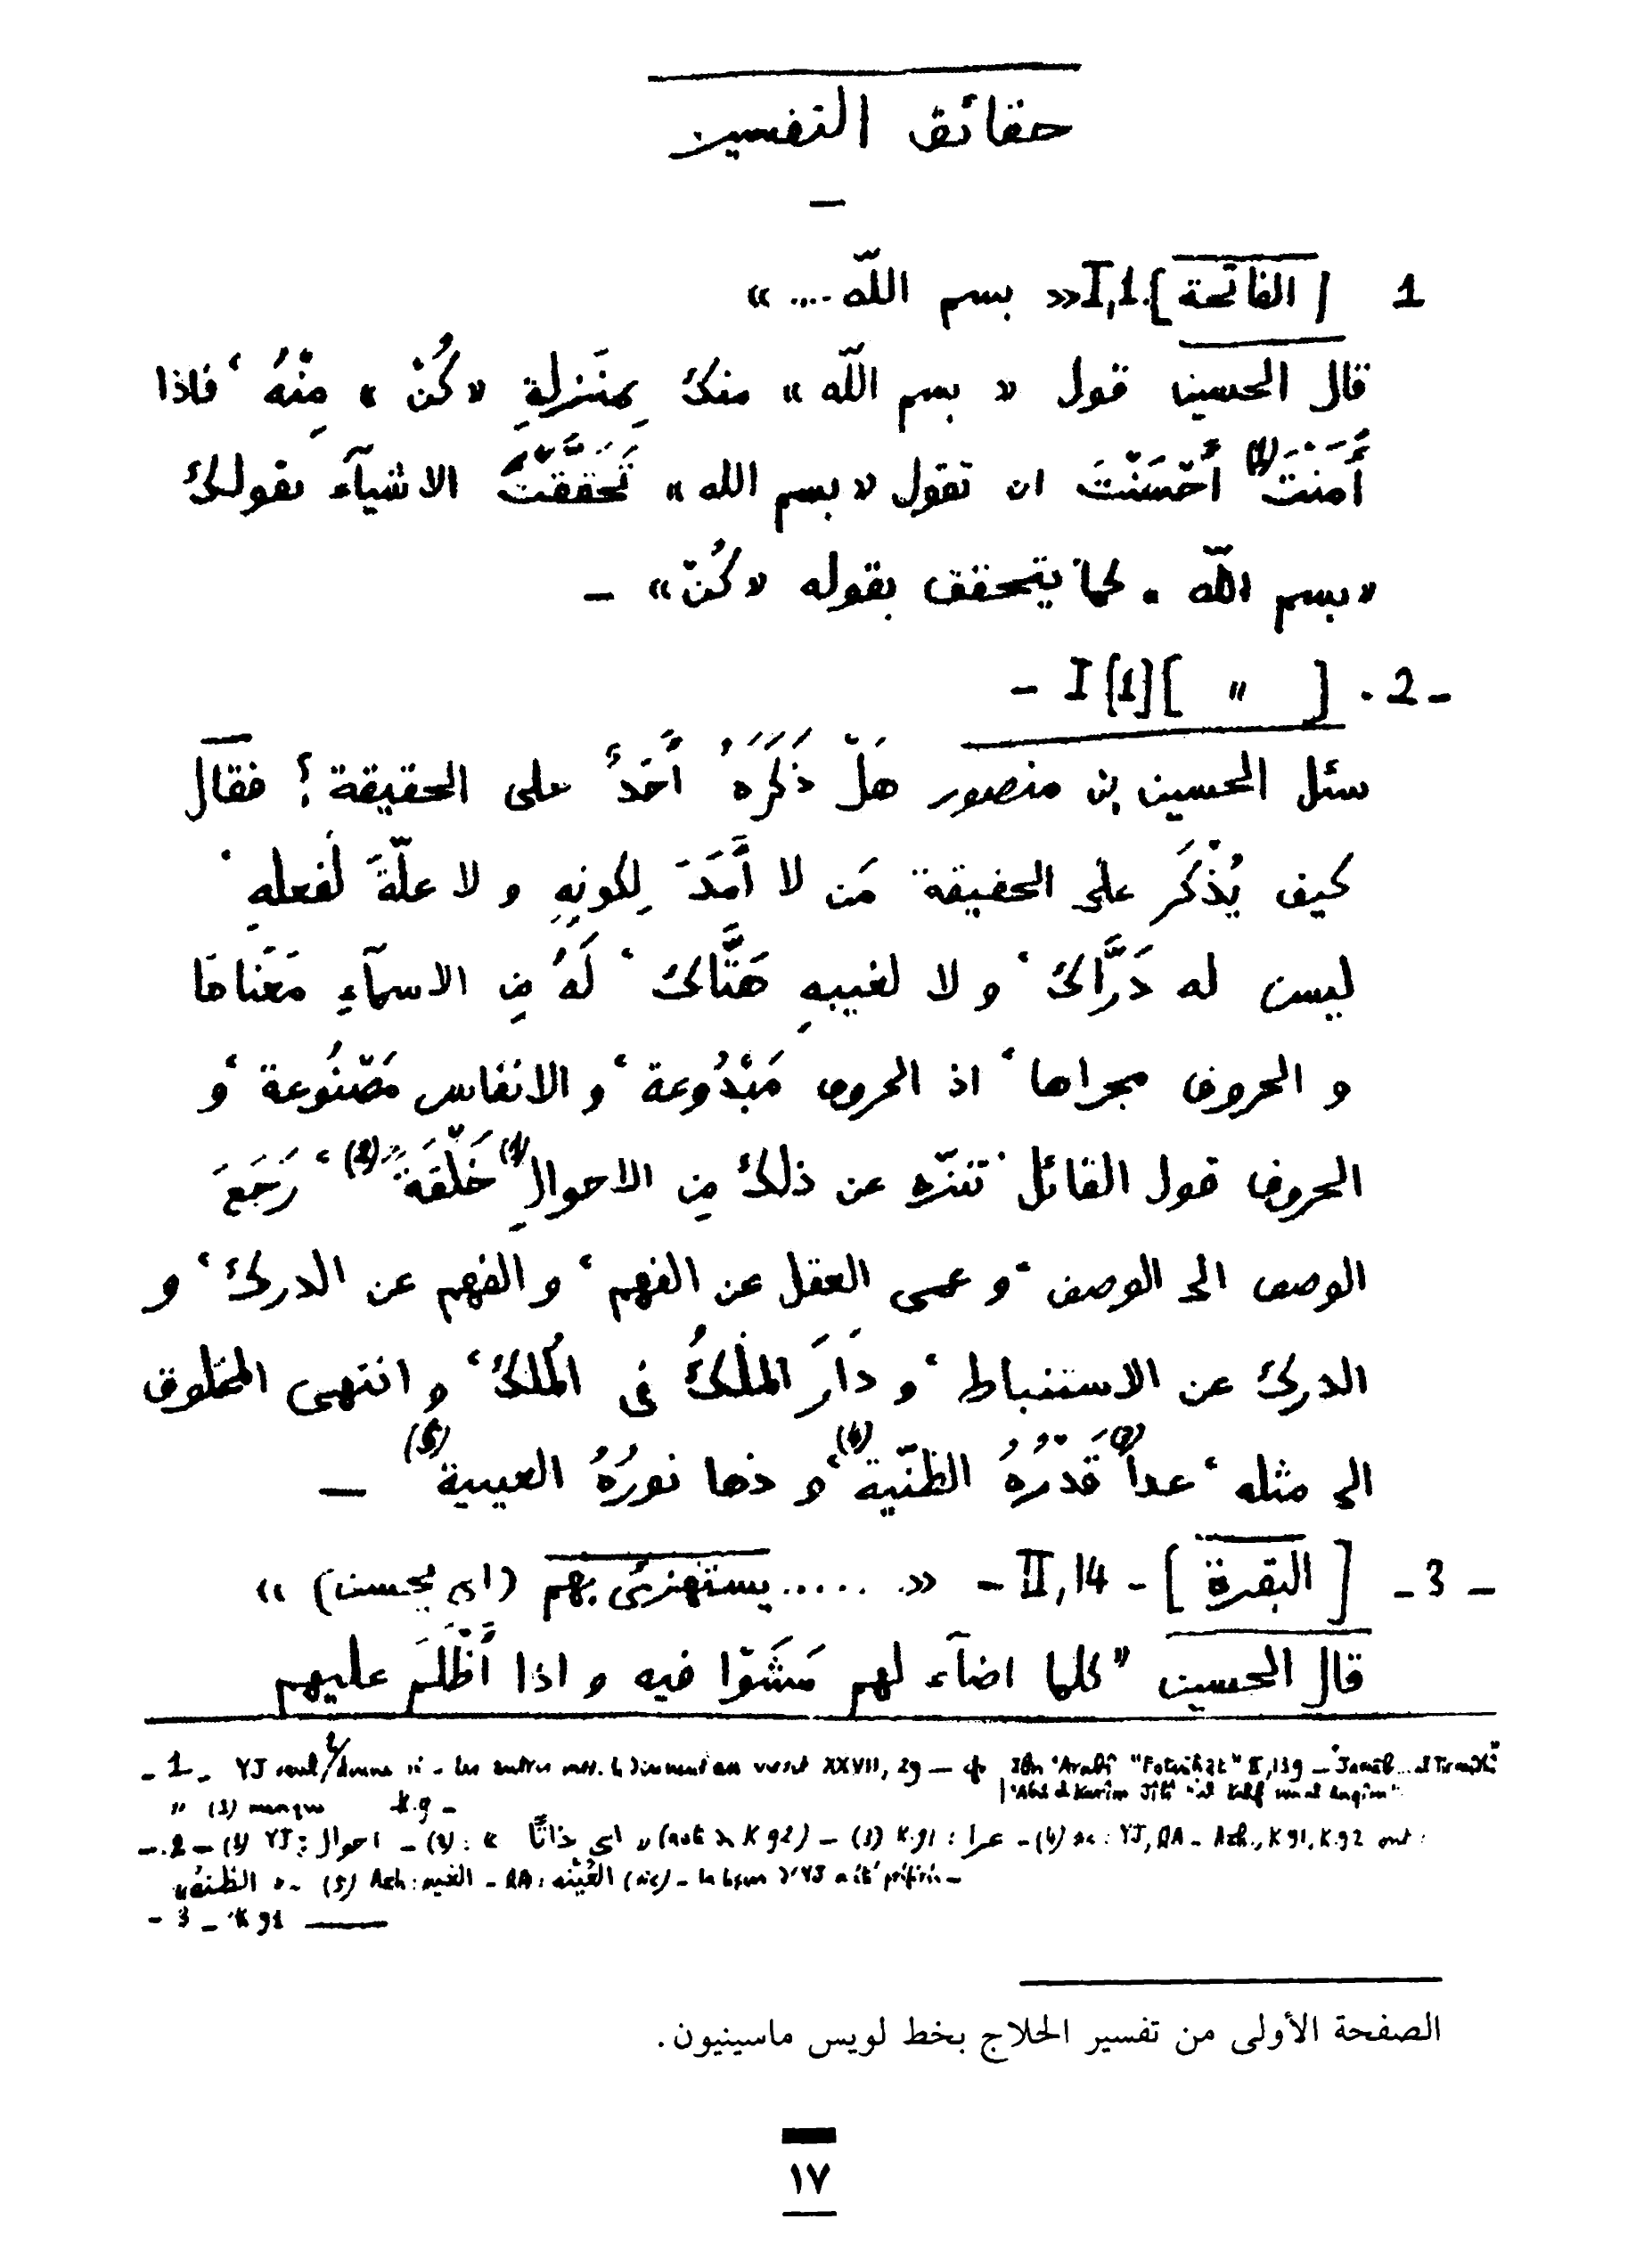 حقائق التفسير
1 [الفاتحة] I,1. « بسم اللّه .... »
قال الحسين قول « بسم اللّه » منك بِمَنزلةِ « كُنْ » مِنْهُ ، فاذا
أَمَنْتَ (1) أَحْسَنْتَ ان تقول « بسم الله » تَحَقَّقَتْ الاشيآء بقولك
« بسم اللّه » كما يتحقق بقوله « كُنْ » –
– 2 . [ " ] [1] I –
سئل الحسين بن منصور هَلْ ذَكَرَهُ أَحَدٌ على الحقيقة ؟ فقال
كيف يُذْكَر على الحقيقة مَن لا أَمَدَ لِكونِهِ و لا علّةَ لفعلهِ ،
ليس له دَرَّاكٌ ، و لا لغيبهِ هَتَّاكٌ ، لَهُ مِن الاسمآءِ مَعْنَاها
و الحروف مجراها ، اذ الحروف مَبْدُوعة ، و الانفاس مَصْنُوعة ، و
الحروف قول القائل ، تنزّه عن ذلك مِن الاحوالِ (1) خَلْقَهُ (2) ، رَجَعَ
الوصف الى الوصف ، و عمى العقل عن الفهم ، و الفهم عن الدرك ، و
الدرك عن الاستنباط ، و دَارَ المُلْكُ فى المُلك ، و انتهى المخلوق
الى مثله ، عدا (3) قَدْرُهُ الظنّية (4) ، و ذها نورُهُ العيبية (5) —
– 3 – [ البقرة ] – II, 14 – « ..... يستهزئ بهم (اى يحسن) »
قال الحسين " كلما اضآء لهم مَشَوْا فيه و اذا أَظْلَمَ عليهم
– 1 – YJ seul donne ici – les autres mss. le donnent au verset XXVII, 29 – cf. Ibn 'Arabî "Fotûhât" II, 139
" (1) manque K.9 –
– 2 – (1) YJ : احوال – (2) : « اى ذاتًا » – (3) K.91 : عرا – (4) sic : YJ, QA – Azh., K 91, K.92 ont :
« الظنة » – (5) Azh : الغيبه – QA : (sic)
– 3 – K 91
الصفحة الأولى من تفسير الحلاج بخط لويس ماسينيون.
١٧